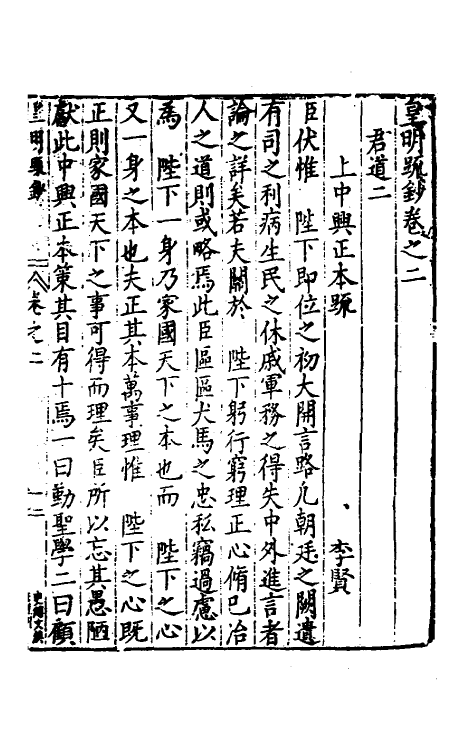 皇明疏鈔卷之二
君道二
上中興正本疏　李賢
臣伏惟　陛下即位之初大開言路凢朝廷之闕遺
有司之利病生民之休戚軍務之得失中外進言者
論之詳矣若夫關於　陛下躬行窮理正心脩己治
人之道則或略焉此臣區區犬馬之忠私竊過慮以
為　陛下一身乃家國天下之本也而　陛下之心
又一身之本也夫正其本萬事理惟　陛下之心既
正則家國天下之事可得而理矣臣所以忘其愚陋
獻此中興正本策其目有十焉一曰勤聖學二曰顧
皇明疏鈔　卷之二　一